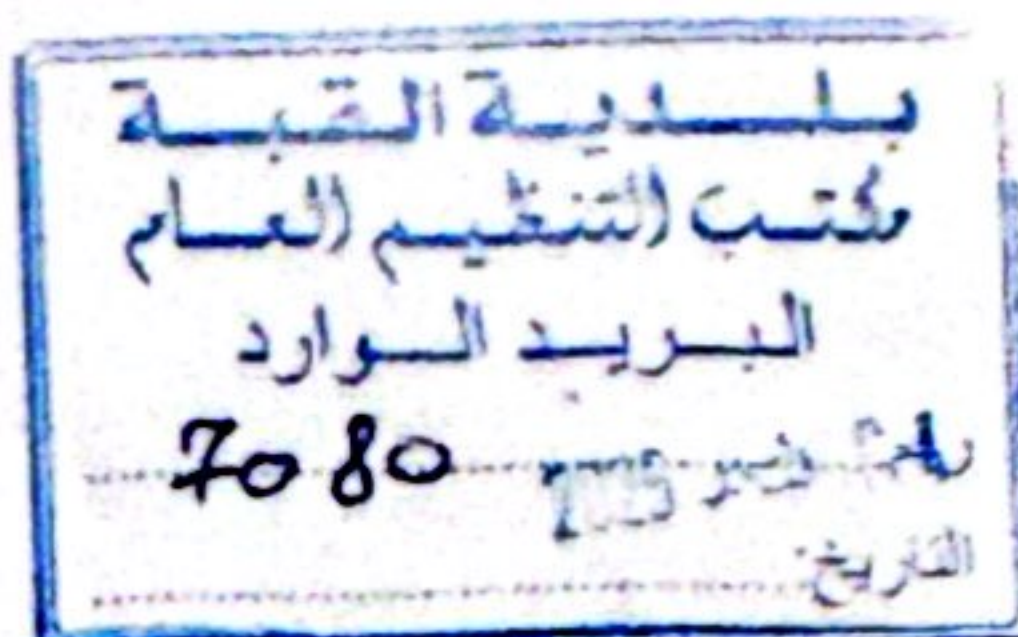 بلدية القبة
مكتب التنظيم العام
البريد الوارد
رقم 7080
التاريخ: